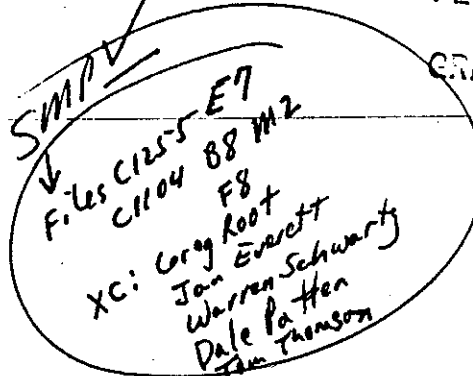 SMP
Files C125-5 E7
C1104 B8 M2
F8
XC: Greg Root
Jan Everett
Warren Schwartz
Dale Patten
Tom Thomson